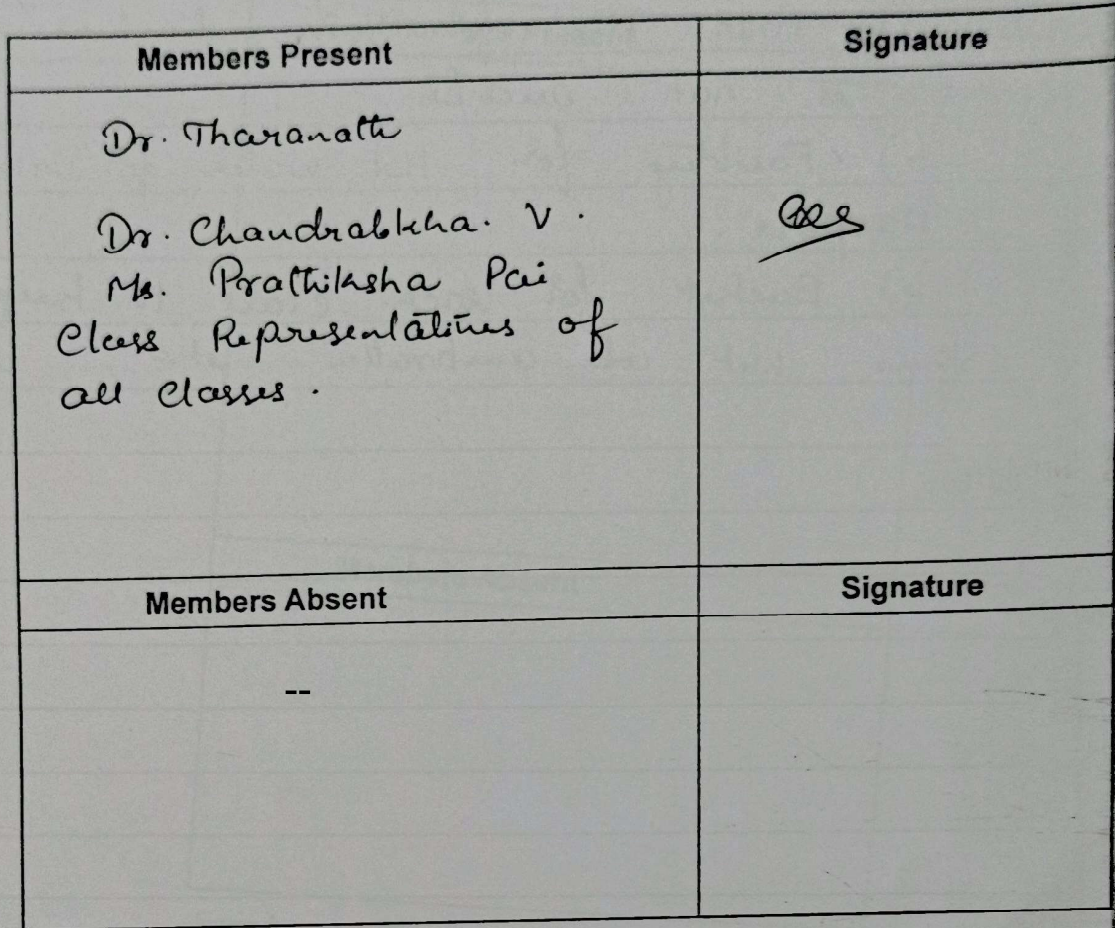 Members Present Signature
Dr. Tharanath
Dr. Chandrablkha. V.
Ms. Prathiksha Pai
Class Representatives of
all classes.
Members Absent Signature
--